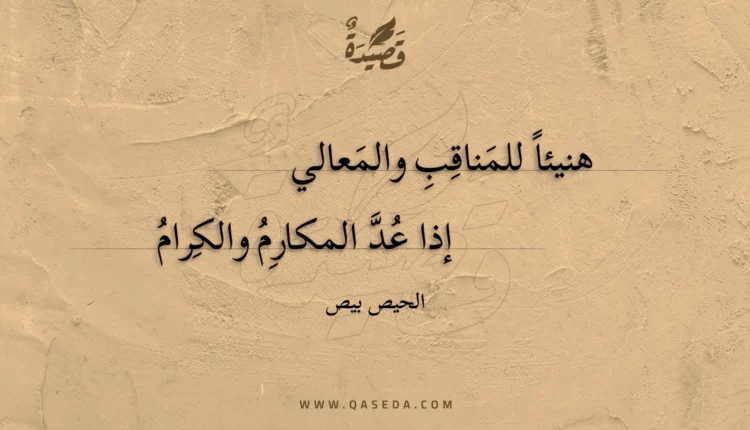 قَصِيدَةٌ
هنيئاً للمَناقِبِ والمَعالي
إذا عُدَّ المكارِمُ والكِرامُ
الحيص بيص
WWW.QASEDA.COM